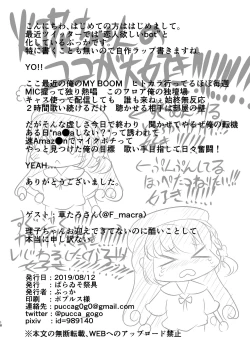 こんにちわ、はじめての方ははじめまして。
最近ツイッターでは”恋人欲しいbot”と
化しているぷっかです。
特に書くことも無いので自作ラップ書きますね
YO!!
ここ最近の俺のMY BOOM ヒトカラ行ってるほぼ毎週
MICに握って独り熱唱 このフロア俺の独壇場
キャス使って配信しても 誰も来ねぇ始終無反応
2時間歌い続けるだけ 聴かせる相手は部屋の壁
だがそんな虚しさ今日で終わり 聞かせてやるぜ俺の転機
ある日“na●aしない?”って誘われて
速Amaz●nでマイクポチって
やっと見つけた俺の目標 歌い手目指して日々奮闘!
YEAH.....
ありがとうございました。
ゲスト:草たろさん(@F_macra)
理子ちゃんお迎えできてないのに酷いことして
本当に申し訳ない
発行日:2019/08/12
発行:ばらみぞ祭具
発行者:ぷっか
印刷:ポプルス様
連絡先:puccag0g0@gmail.com
twitter:@pucca_gogo
pixiv :id=989140
※本文の無断転載、WEBへのアップロード禁止